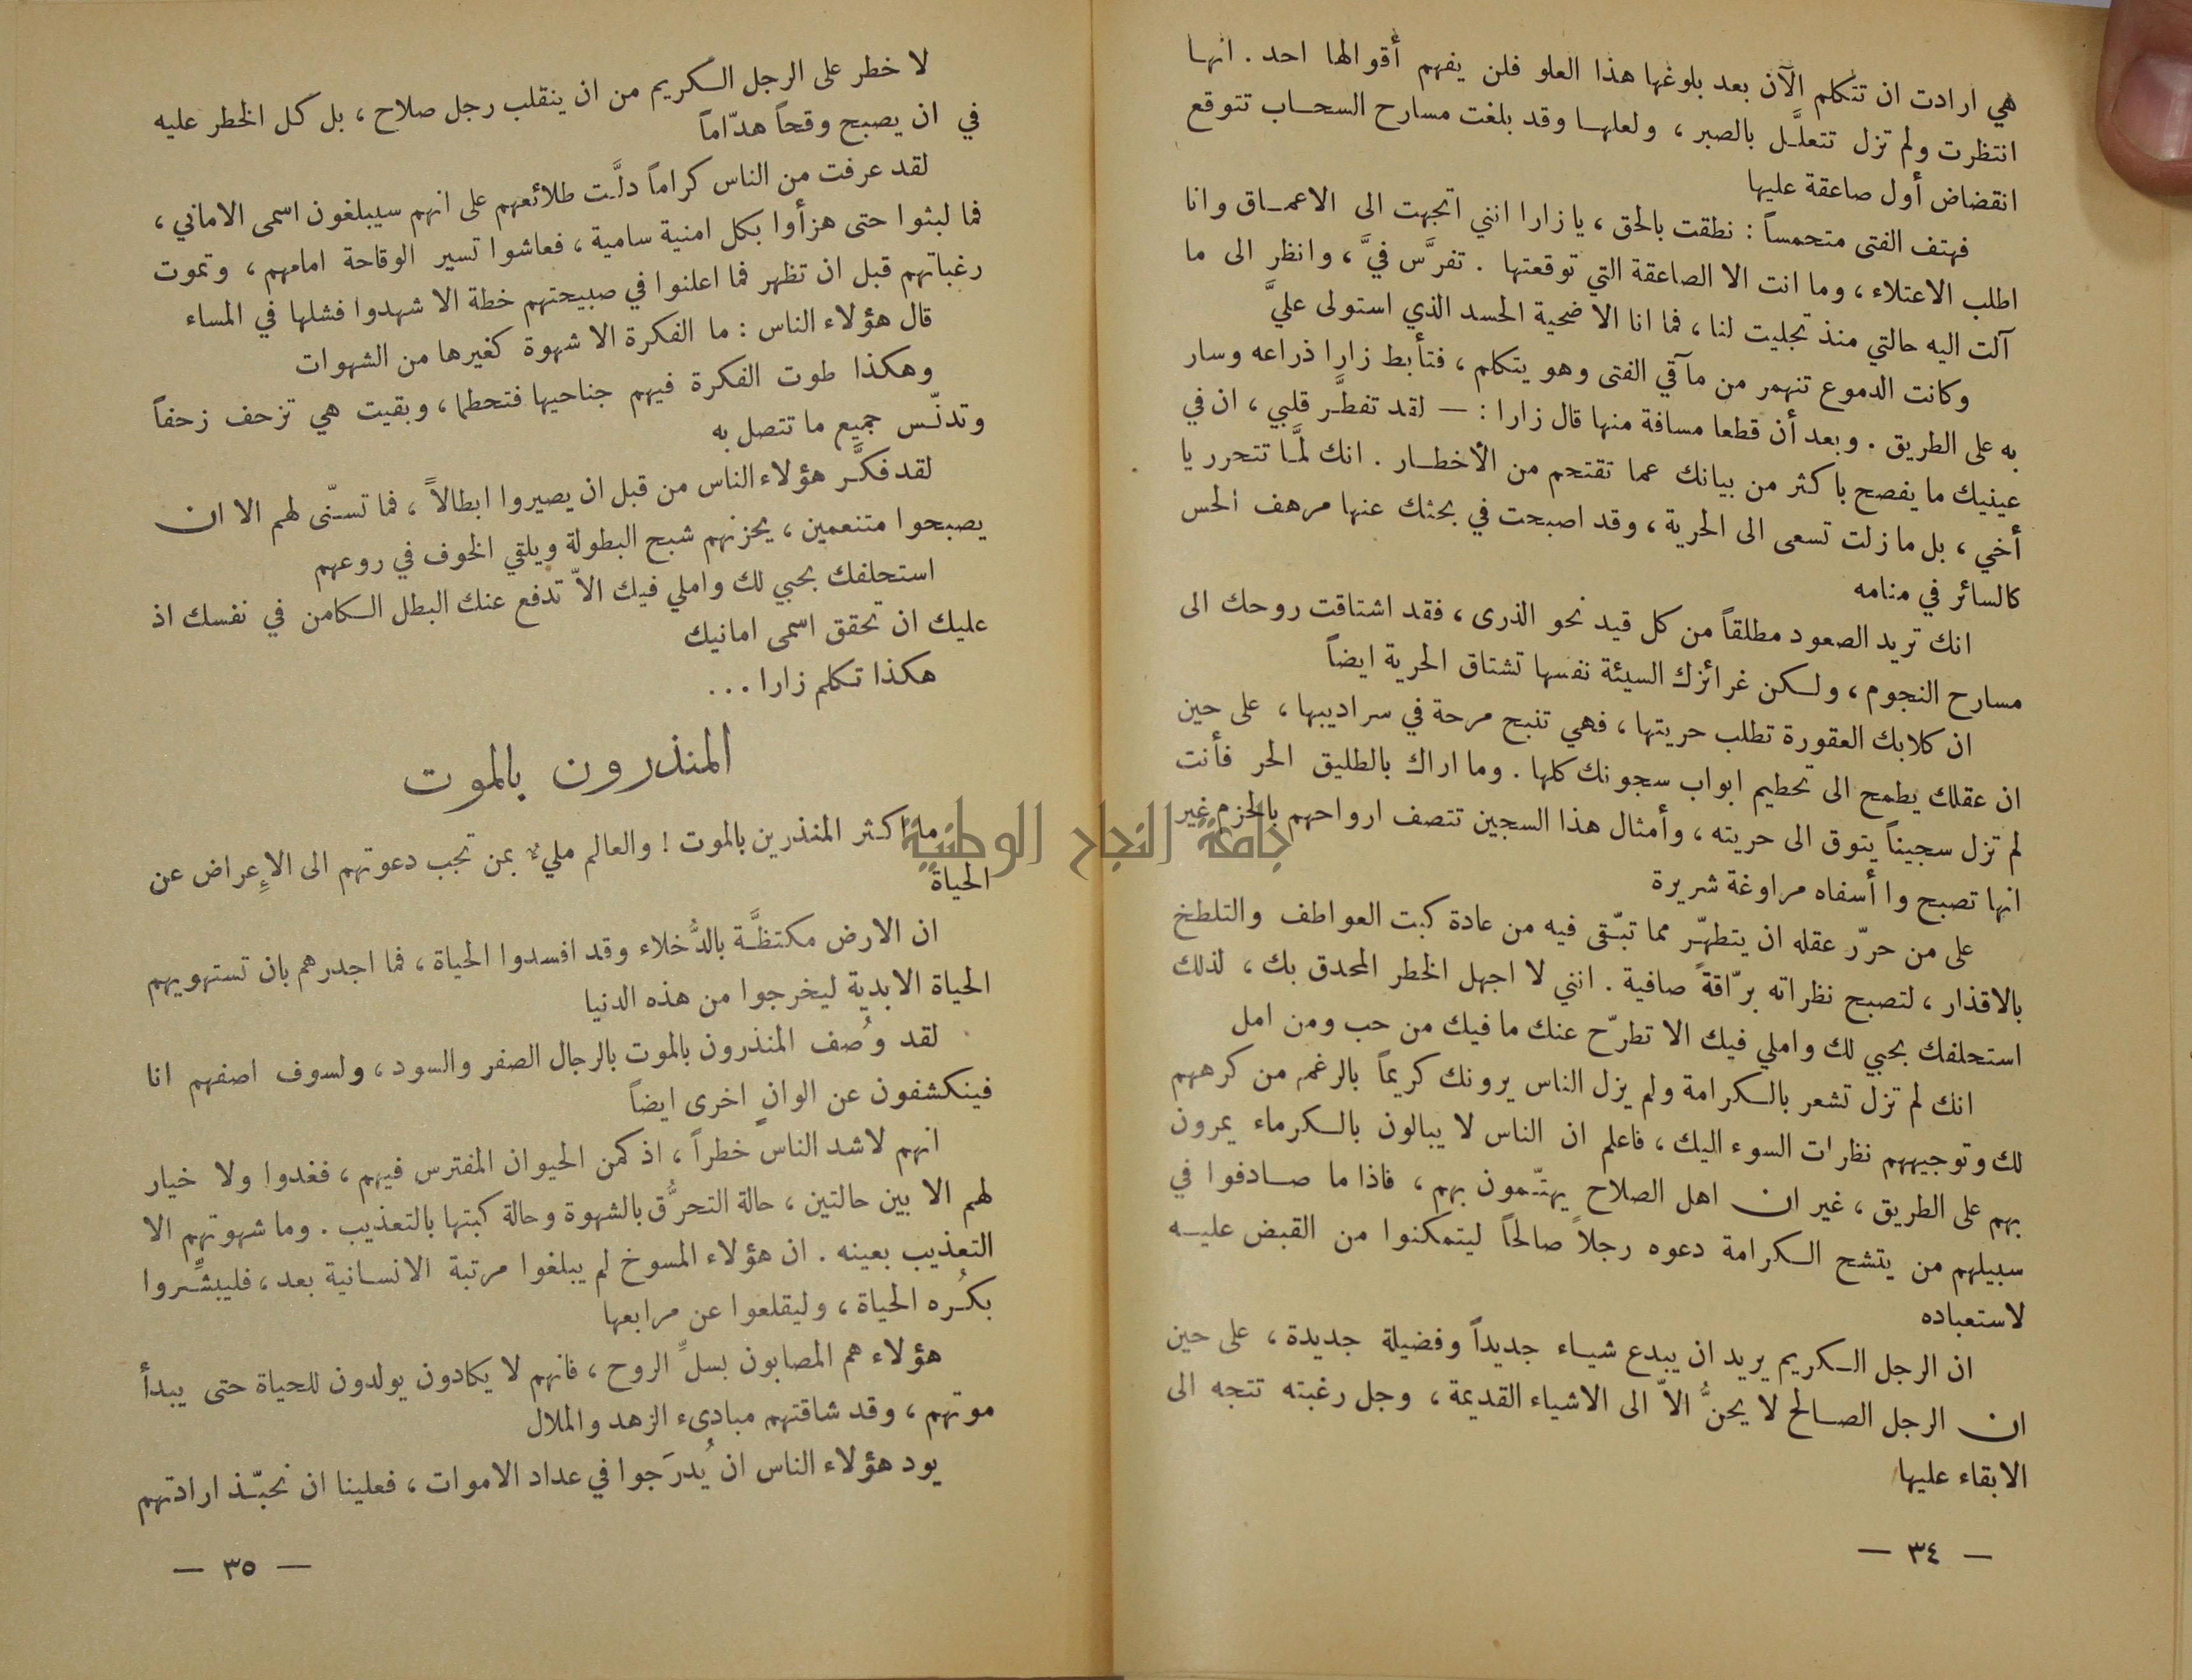 هي ارادت ان تتكلم الآن بعد بلوغها هذا العلو فلن يفهم أقوالها احد . انها
انتظرت ولم تزل تتعلَّل بالصبر ، ولعلها وقد بلغت مسارح السحاب تتوقع
انقضاض أول صاعقة عليها
فهتف الفتى متحمساً : نطقت بالحق ، يا زارا انني اتجهت الى الاعماق وانا
اطلب الاعتلاء ، وما انت الا الصاعقة التي توقعتها . تفرَّس فيَّ ، وانظر الى ما
آلت اليه حالتي منذ تجليت لنا ، فما انا الا ضحية الحسد الذي استولى عليَّ
وكانت الدموع تنهمر من مآقي الفتى وهو يتكلم ، فتأبط زارا ذراعه وسار
به على الطريق . وبعد أن قطعا مسافة منها قال زارا : — لقد تفطَّر قلبي ، ان في
عينيك ما يفصح باكثر من بيانك عما تقتحم من الأخطار . انك لمَّا تتحرر يا
أخي ، بل ما زلت تسعى الى الحرية ، وقد اصبحت في بحثك عنها مرهف الحس
كالسائر في منامه
انك تريد الصعود مطلقاً من كل قيد نحو الذرى ، فقد اشتاقت روحك الى
مسارح النجوم ، ولكن غرائزك السيئة نفسها تشتاق الحرية ايضاً
ان كلابك العقورة تطلب حريتها ، فهي تنبح مرحة في سراديبها ، على حين
ان عقلك يطمح الى تحطيم ابواب سجونك كلها . وما اراك بالطليق الحر فأنت
لم تزل سجيناً يتوق الى حريته ، وأمثال هذا السجين تتصف ارواحهم بالحزم غير
انها تصبح وا أسفاه مراوغة شريرة
على من حرّر عقله ان يتطهّر مما تبّقى فيه من عادة كبت العواطف والتلطخ
بالاقذار ، لتصبح نظراته برّاقةً صافية . انني لا اجهل الخطر المحدق بك ، لذلك
استحلفك بحبي لك واملي فيك الا تطرّح عنك ما فيك من حب ومن امل
انك لم تزل تشعر بالكرامة ولم يزل الناس يرونك كريماً بالرغم من كرههم
لك وتوجيههم نظرات السوء اليك ، فاعلم ان الناس لا يبالون بالكرماء يمرون
بهم على الطريق ، غير ان اهل الصلاح يهتّمون بهم ، فاذا ما صادفوا في
سبيلهم من يتشح الكرامة دعوه رجلاً صالحاً ليتمكنوا من القبض عليه
لاستعباده
ان الرجل الكريم يريد ان يبدع شياء جديداً وفضيلة جديدة ، على حين
ان الرجل الصالح لا يحنُّ الاّ الى الاشياء القديمة ، وجل رغبته تتجه الى
الابقاء عليها
— ٣٤ —
لا خطر على الرجل الكريم من ان ينقلب رجل صلاح ، بل كل الخطر عليه
في ان يصبح وقحاً هدّاماً
لقد عرفت من الناس كراماً دلَّت طلائعهم على انهم سيبلغون اسمى الاماني ،
فما لبثوا حتى هزأوا بكل امنية سامية ، فعاشوا تسير الوقاحة امامهم ، وتموت
رغباتهم قبل ان تظهر فما اعلنوا في صبيحتهم خطة الا شهدوا فشلها في المساء
قال هؤلاء الناس : ما الفكرة الا شهوة كغيرها من الشهوات
وهكذا طوت الفكرة فيهم جناحيها فتحطما ، وبقيت هي تزحف زحفاً
وتدنّس جميع ما تتصل به
لقد فكَّر هؤلاء الناس من قبل ان يصيروا ابطالاً ، فما تسنّى لهم الا ان
يصبحوا متنعمين ، يحزنهم شبح البطولة ويلقي الخوف في روعهم
استحلفك بحبي لك واملي فيك الاّ تدفع عنك البطل الكامن في نفسك اذ
عليك ان تحقق اسمى امانيك
هكذا تكلم زارا ...
المنذرون بالموت
ما اكثر المنذرين بالموت ! والعالم مليء بمن تجب دعوتهم الى الإعراض عن
الحياة
ان الارض مكتظَّة بالدُّخلاء وقد افسدوا الحياة ، فما اجدرهم بان تستهويهم
الحياة الابدية ليخرجوا من هذه الدنيا
لقد وُصف المنذرون بالموت بالرجال الصفر والسود ، ولسوف اصفهم انا
فينكشفون عن الوانٍ اخرى ايضاً
انهم لاشد الناس خطراً ، اذ كمن الحيوان المفترس فيهم ، فغدوا ولا خيار
لهم الا بين حالتين ، حالة التحرُّق بالشهوة وحالة كبتها بالتعذيب . وما شهوتهم الا
التعذيب بعينه . ان هؤلاء المسوخ لم يبلغوا مرتبة الانسانية بعد ، فليبشّروا
بكُره الحياة ، وليقلعوا عن مرابعها
هؤلاء هم المصابون بسلِّ الروح ، فانهم لا يكادون يولدون للحياة حتى يبدأ
موتهم ، وقد شاقتهم مبادىء الزهد والملال
يود هؤلاء الناس ان يُدرَجوا في عداد الاموات ، فعلينا ان نحبّذ ارادتهم
— ٣٥ —
جامعة النجاح الوطنية